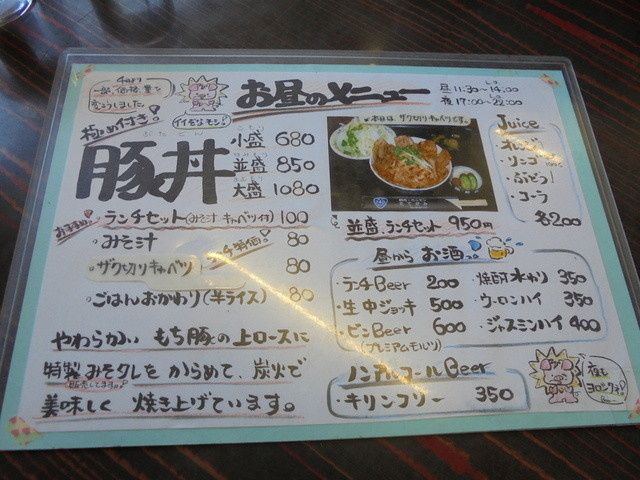 4月より
一部、価格、量を
変こうしました。
イイなモン!
お昼のメニュー
昼 11:30〜14:00
夜 17:00〜22:00
極め付き!
豚丼
小盛 680
並盛 850
大盛 1080
おすすめ!
ランチセット(みそ汁 キャベツ付) 100
・みそ汁 80
・ザク切りキャベツ 80
・ごはんおかわり(半ライス) 80
本日は ザク切りキャベツです。
並盛.ランチセット 950円
Juice
・オレンジ
・リンゴ
・ぶどう
・コーラ
各200
昼から お酒
・ランチBeer 200
・生中ジョッキ 500
・ビンBeer 600
(プレミアムモルツ)
・焼酎水わり 350
・ウーロンハイ 350
・ジャスミンハイ 400
ノンアルコールBeer
・キリンフリー 350
やわらかい もち豚の上ロースに
特製みそタレを からめて、炭火で
販売してます。
美味しく 焼き上げています。
夜も
ヨロシクネ